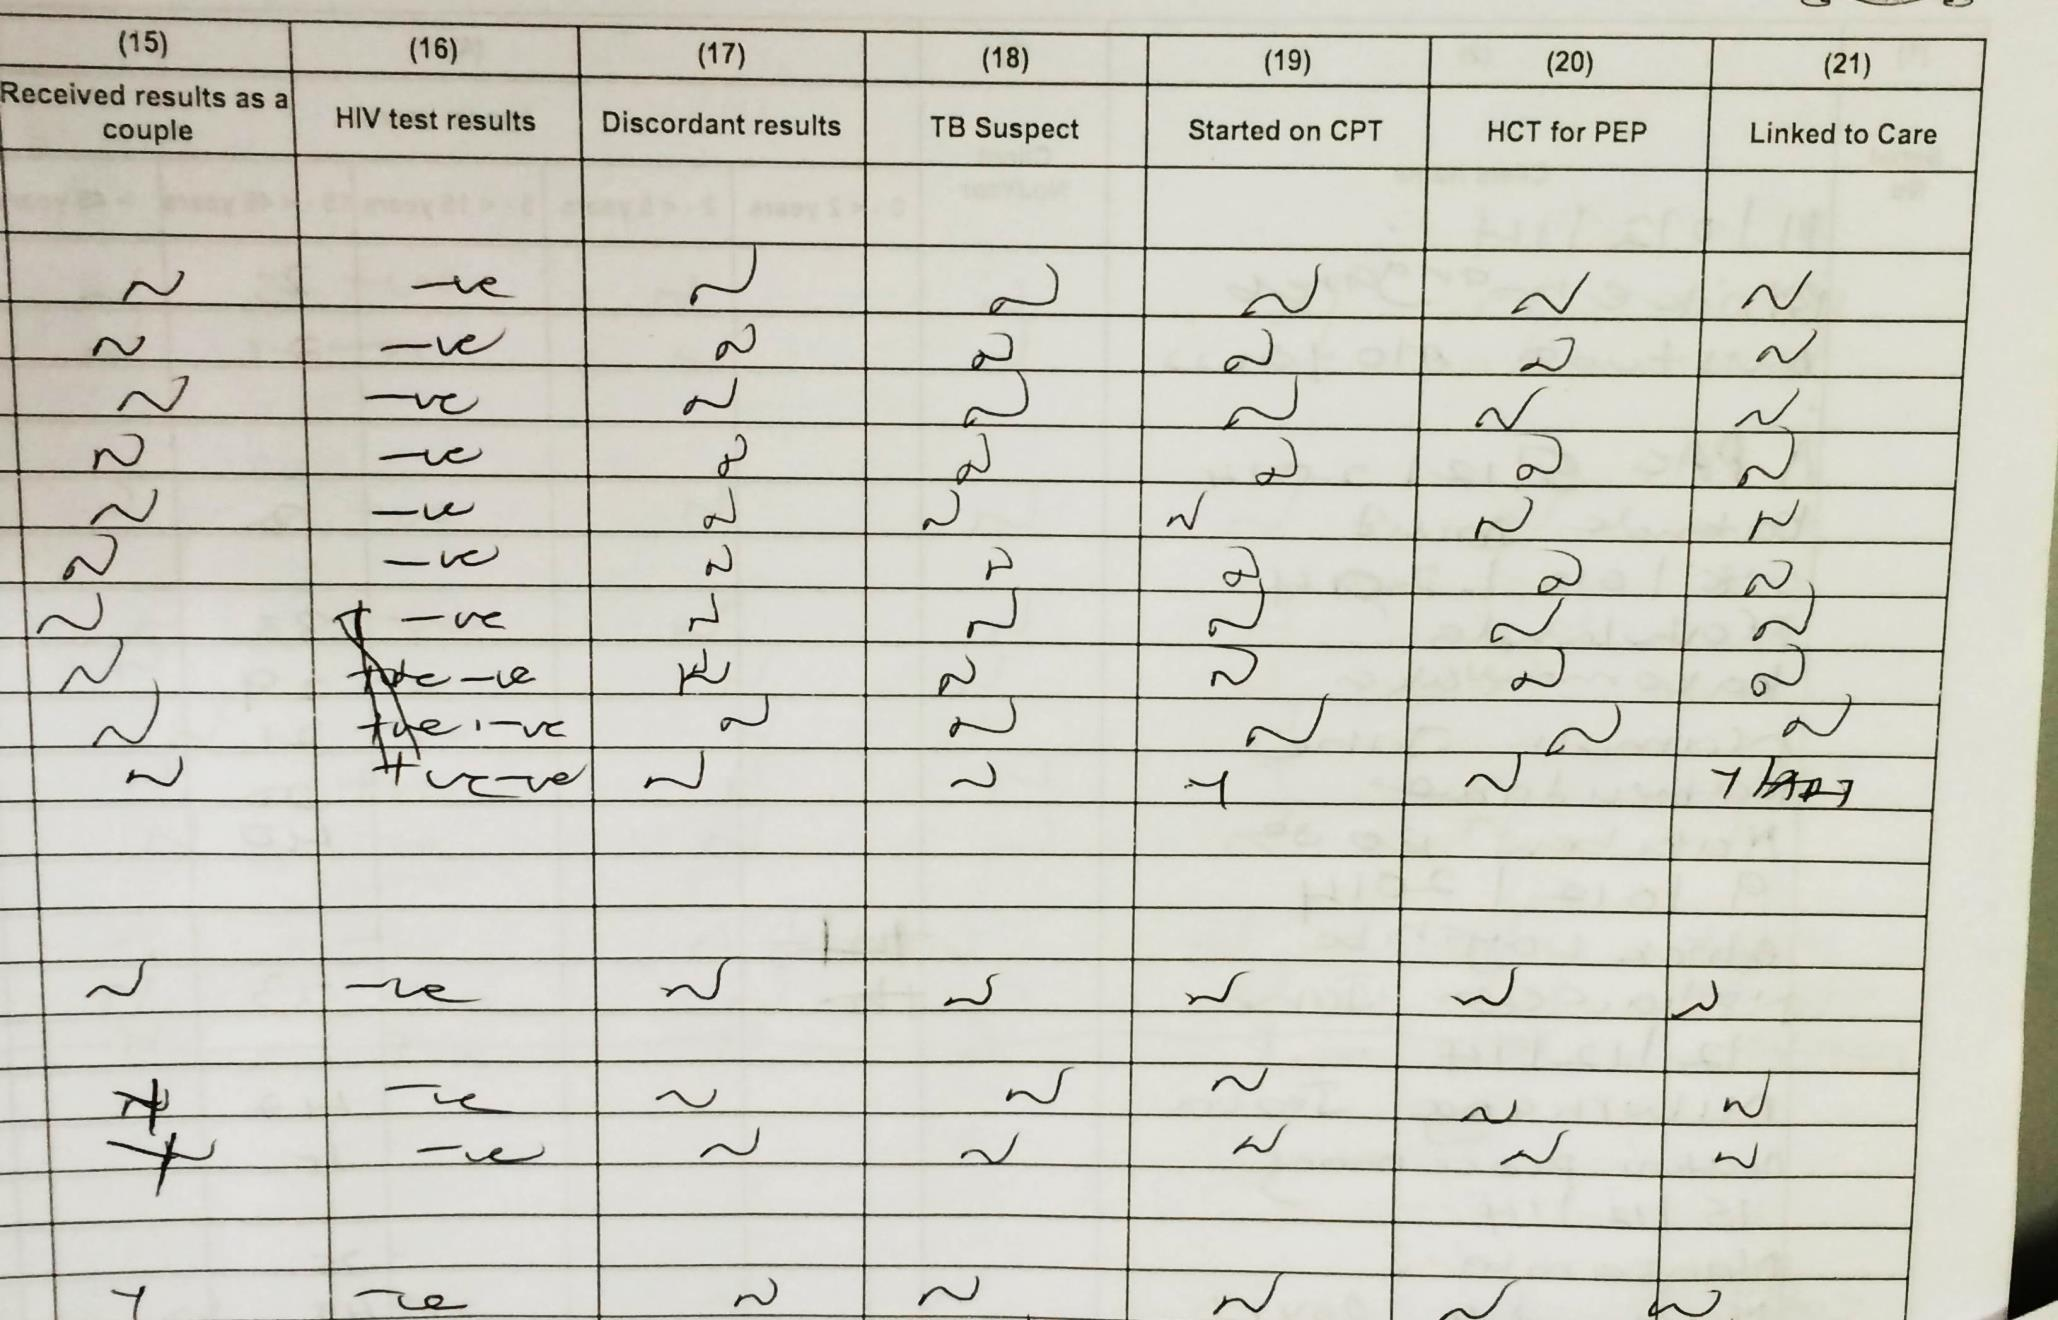 (15) (16) (17) (18) (19) (20) (21)
Received results as a couple HIV test results Discordant results TB Suspect Started on CPT HCT for PEP Linked to Care
N -ve N N N N N
N -ve N N N N N
N -ve N N N N N
N -ve N N N N N
N -ve N N N N N
N -ve N N N N N
N -ve N N N N N
N -ve N N N N N
N +ve -ve N N N N N
N +ve -ve N N Y N Y
N -ve N N N N N
N -ve N N N N N
-ve N N N N N
Y -ve N N N N N